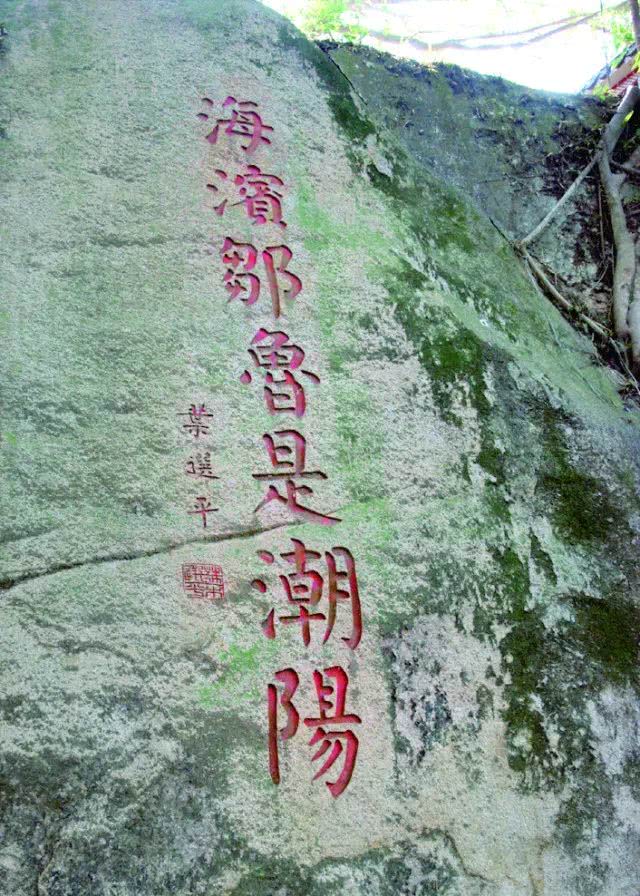 海濱鄒魯是潮陽
葉選平